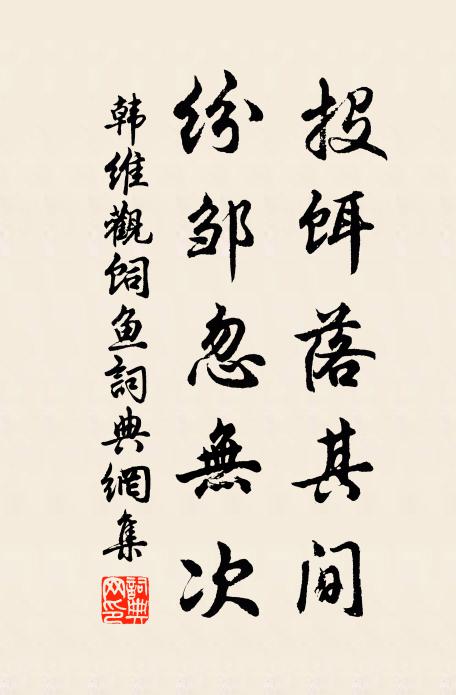 投饵落其间
纷邹忽無次
韩维觀饲鱼詞典網集
詞典網印